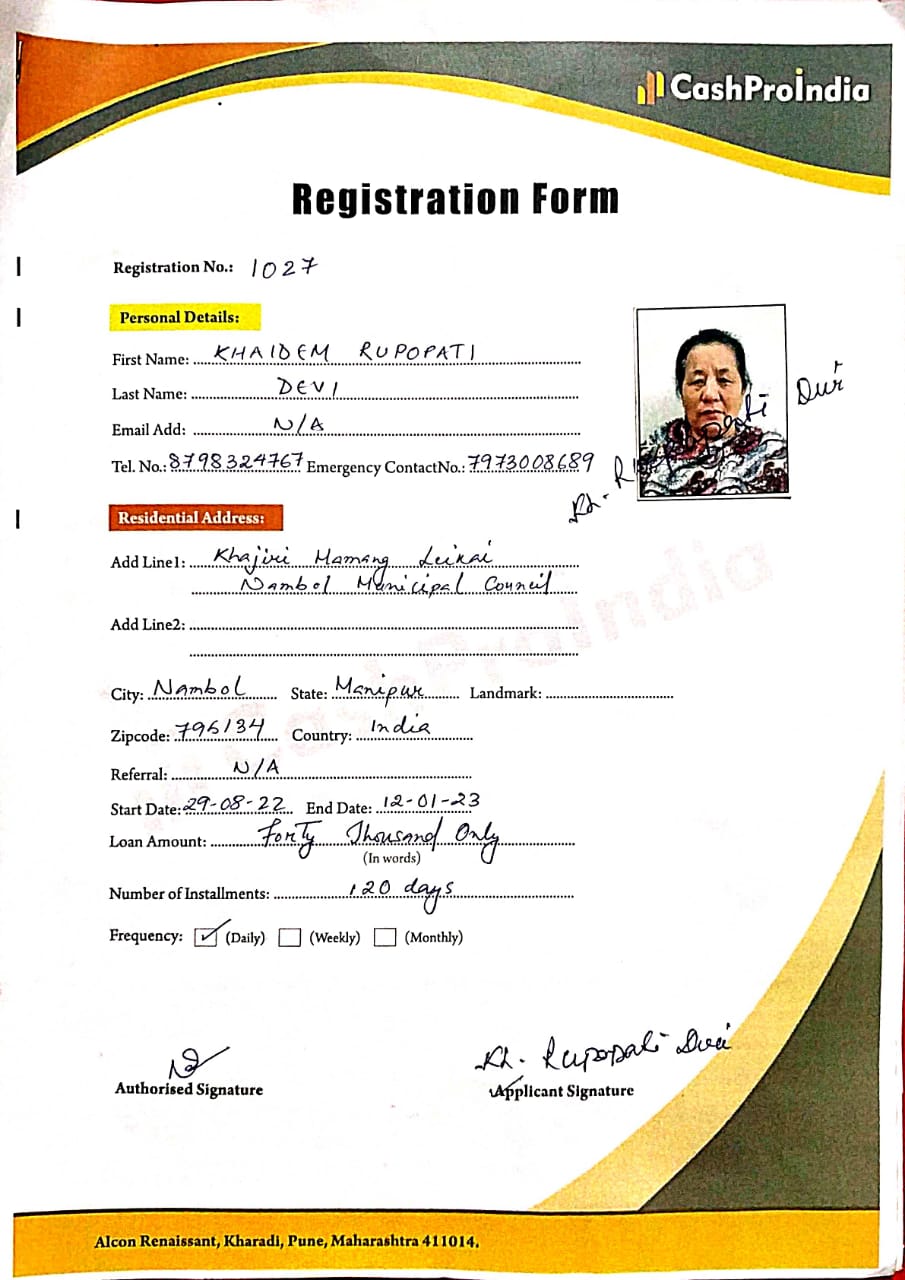 CashProIndia
Registration Form
Registration No.: 1027
Personal Details:
First Name: KHAIDEM RUPOPATI
Last Name: DEVI
Email Add: N/A
Tel. No.: 8798324767 Emergency ContactNo.: 7973008689
Kh. Rupopati Devi
Residential Address:
Add Line1: Khajiri Mamang Leikai
Nambol Municipal Council
Add Line2:
CashProIndia
City: Nambol State: Manipur Landmark:
Zipcode: 795134 Country: India
Referral: N/A
Start Date: 29-08-22 End Date: 12-01-23
Loan Amount: Forty Thousand Only
(In words)
Number of Installments: 120 days
Frequency: (Daily) (Weekly) (Monthly)
Kh. Rupopati Devi
Authorised Signature Applicant Signature
Alcon Renaissant, Kharadi, Pune, Maharashtra 411014.